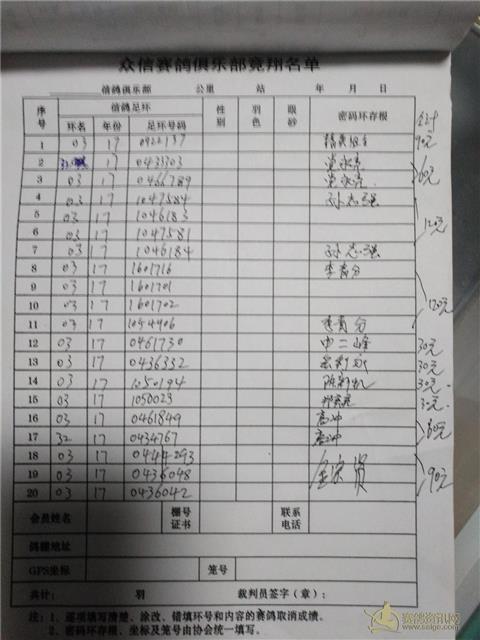 众信赛鸽俱乐部竞翔名单
信鸽俱乐部 公里 站 年 月 日
序号 信鸽足环 性别 羽色 眼砂 密码环存根 合计
环名 年份 足环号码
1 03 17 0922137 90元
2 17 0433303
3 03 17 0466789 60元
4 03 17 1047584 孙志强
5 03 17 1046183
6 03 17 1047581 120元
7 03 17 1046184 孙志强
8 03 17 1601716 李育分
9 03 17 1601701
10 03 17 1601702 120元
11 03 17 1054406 李育分
12 03 17 0461730 申二峰 30元
13 03 17 0436332 30元
14 03 17 1050194 30元
15 03 17 1050023 30元
16 03 17 0461849 高冲
17 32 17 0434767 高冲 60元
18 03 17 0444293
19 03 17 0436048 90元
20 03 17 0436042
会员姓名 棚号证书 联系电话
鸽棚地址
GPS坐标 笼号
共计： 羽 裁判员签字（章）：
注：1、逐项填写清楚、涂改、错填环号和内容的赛鸽取消成绩。
2、密码环存根、坐标及笼号由协会统一填写。
赛鸽资讯网
www.saige.com